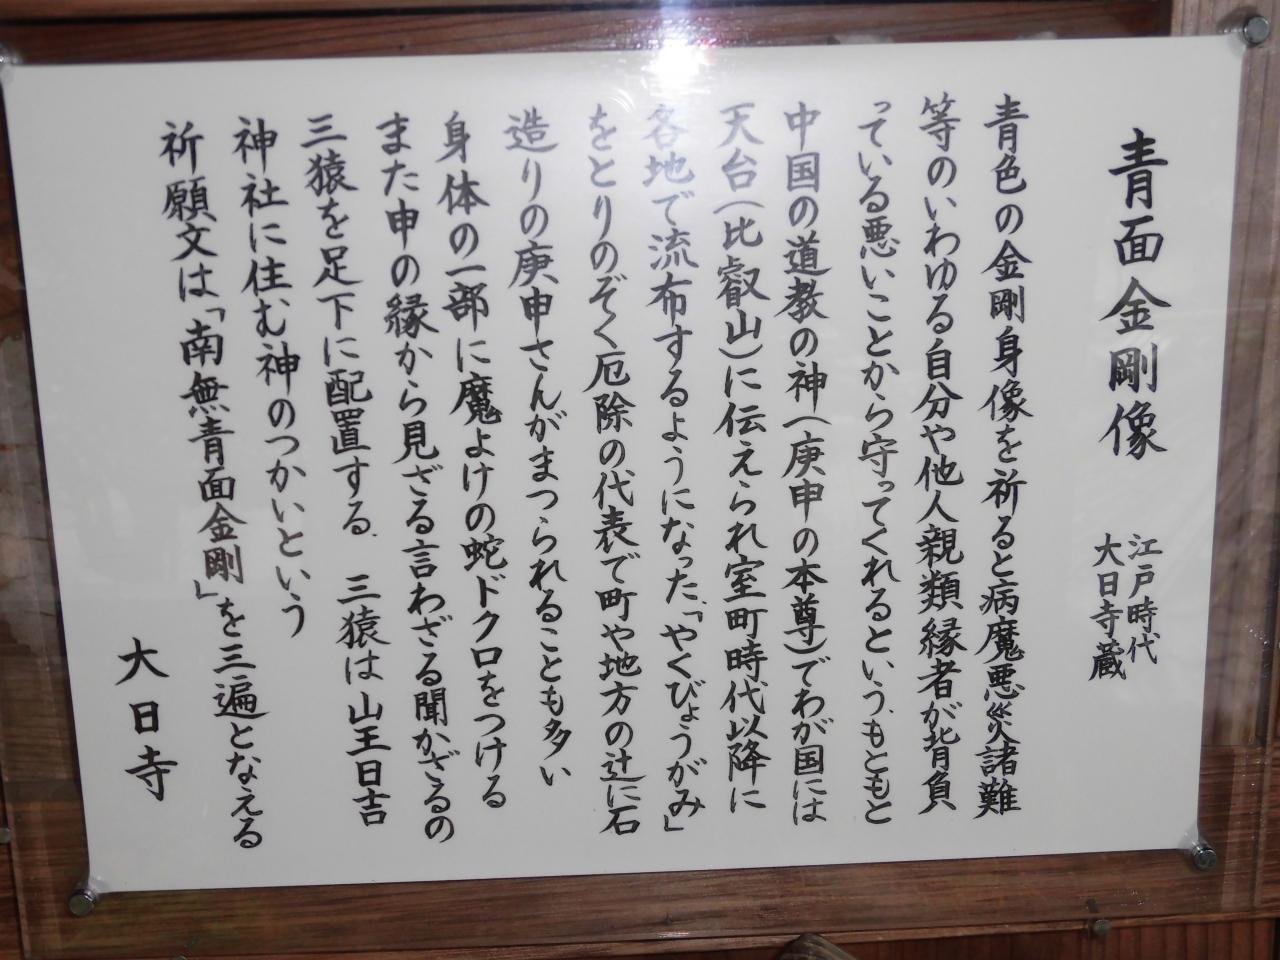 青面金剛像
江戸時代
大日寺蔵
青色の金剛身像を祈ると病魔悪災諸難
等のいわゆる自分や他人親類縁者が背負
っている悪いことから守ってくれるという、もともと
中国の道教の神(庚申の本尊)でわが国には
天台(比叡山)に伝えられ室町時代以降に
各地で流布するようになった、「やくびょうがみ」
をとりのぞく厄除の代表で町や地方の辻に石
造りの庚申さんがまつられることも多い
身体の一部に魔よけの蛇ドクロをつける
また申の縁から見ざる言わざる聞かざるの
三猿を足下に配置する、三猿は山王日吉
神社に住む神のつかいという
祈願文は「南無青面金剛」を三遍となえる
大日寺